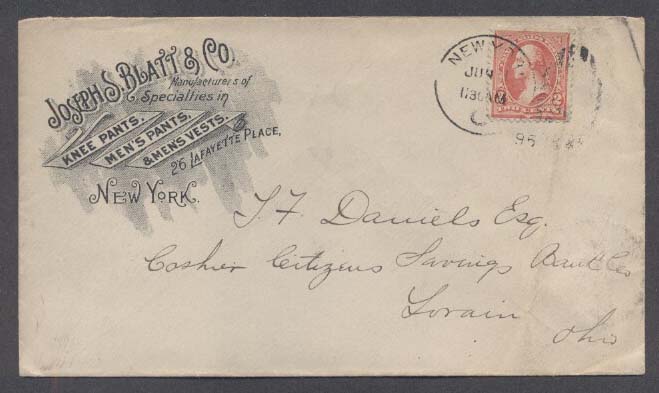 JOSEPH S. BLATT & CO.
Manufacturers of
Specialties in
KNEE PANTS,
MEN'S PANTS,
& MEN'S VESTS.
26 LAFAYETTE PLACE,
NEW YORK.
NEW YORK
JUN
1130AM
95
2 2
T. F. Daniels Esq.
Cashier Citizens Savings Bank Co
Lorain
Ohio